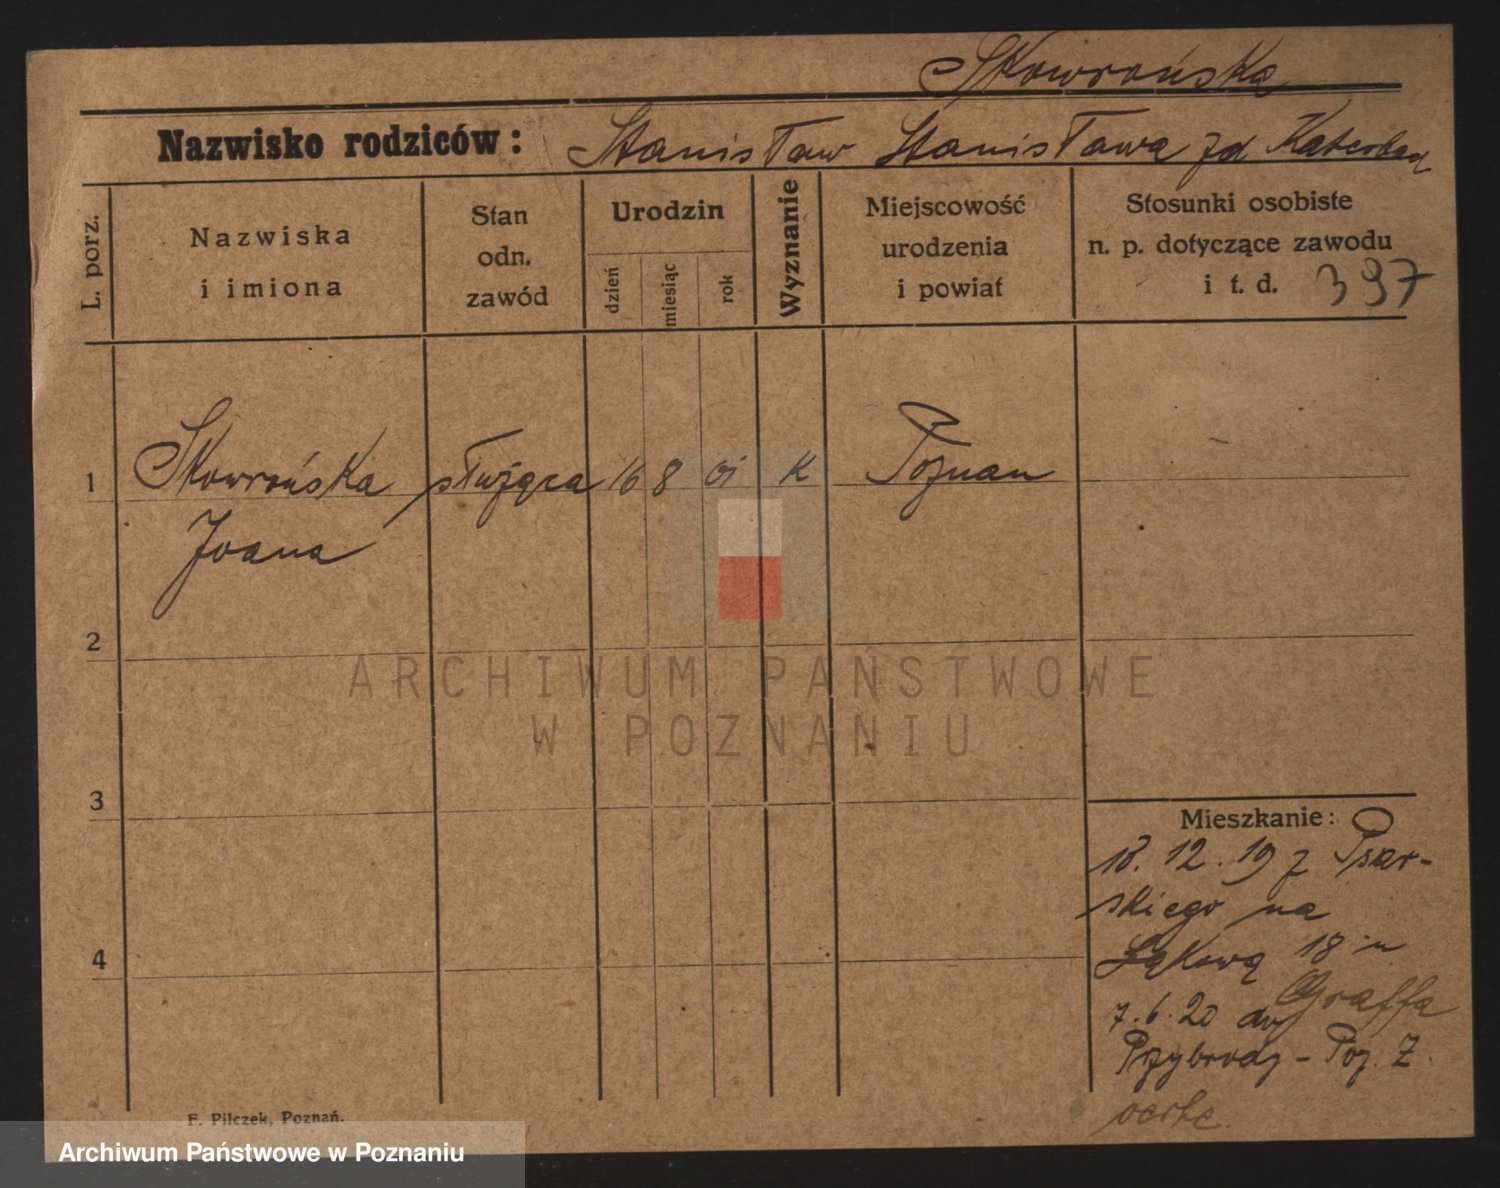 Skowrońska
Nazwisko rodziców: Stanisław Stanisława zd
L. porz.
Nazwiska
i imiona
Stan
odn.
zawód
Urodzin
dzień
miesiąc
rok
Wyznanie
Miejscowość
urodzenia
i powiat
Stosunki osobiste
n. p. dotyczące zawodu
i t. d. 397
1 Skowrońska służąca 16 8 01 K Poznan
Joana
2
3
4
Mieszkanie:
18. 12. 19 z Psar-
skiego na
Łąkową 18 u
Graffa
7. 6. 20 do
Przybrody - Poz. Z.
F. Pilczek, Poznań.
ARCHIWUM PAŃSTWOWE
W POZNANIU
Archiwum Państwowe w Poznaniu